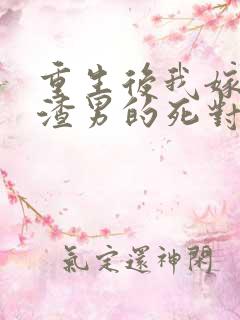 重生後我嫁
渣男的死對
氣定還神閑